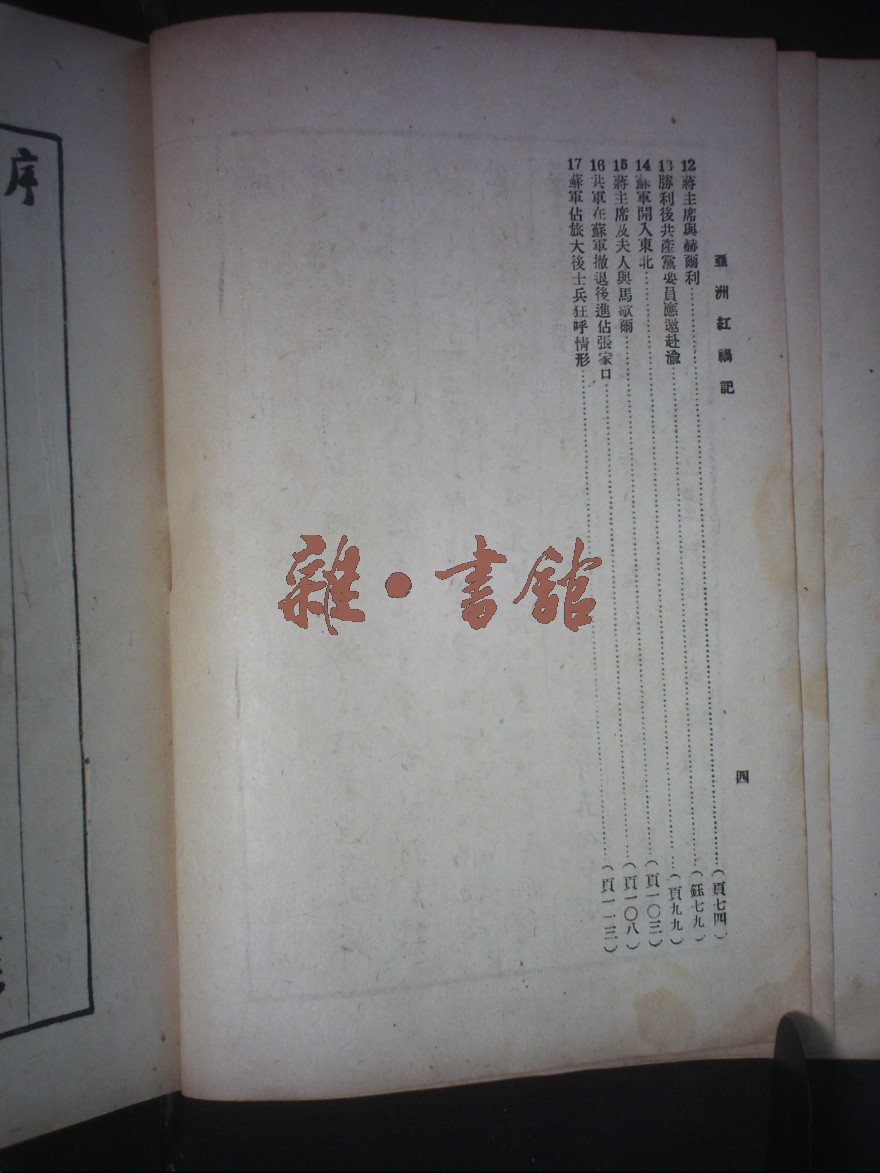 亞洲紅禍記
四
12蔣主席與赫爾利……(頁七四)
13勝利後共產黨要員應邀赴渝……(鈺七九)
14蘇軍開入東北……(頁九九)
15蔣主席及夫人與馬歇爾……(頁一〇三)
16共軍在蘇軍撤退後進佔張家口……(頁一〇八)
17蘇軍佔旅大後士兵狂呼情形……(頁一一三)
序
雜·書館